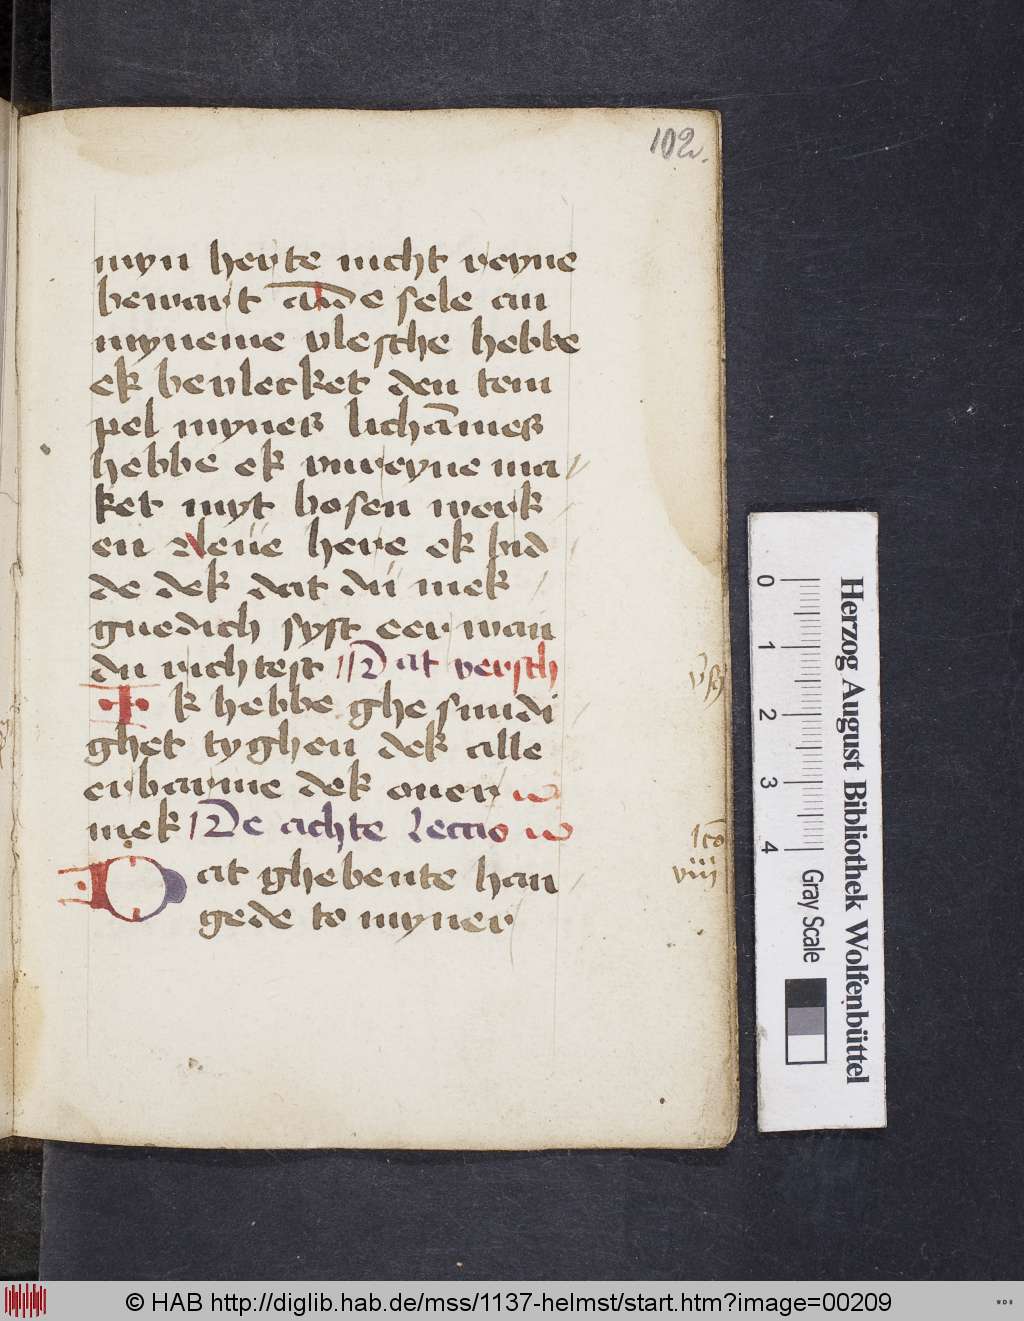 102.
myn herte nicht reyne
bewart de sele an
myneme vlesche hebbe
ek bevlecket den tem
pel mynes lichāmes
hebbe ek vnreyne ma
ket myt bosen werk
en leue here ek bid
de dek dat du mek
gnedich syst eer wan
du richtest Dat versch
Ik hebbe ghe sundi
ghet tyghen dek alle
erbarme dek ouer
mek De achte Lectio
viij
Dat ghebente han
gede to myner
0 1 2 3 4
Gray Scale
Herzog August Bibliothek Wolfenbüttel
© HAB http://diglib.hab.de/mss/1137-helmst/start.htm?image=00209